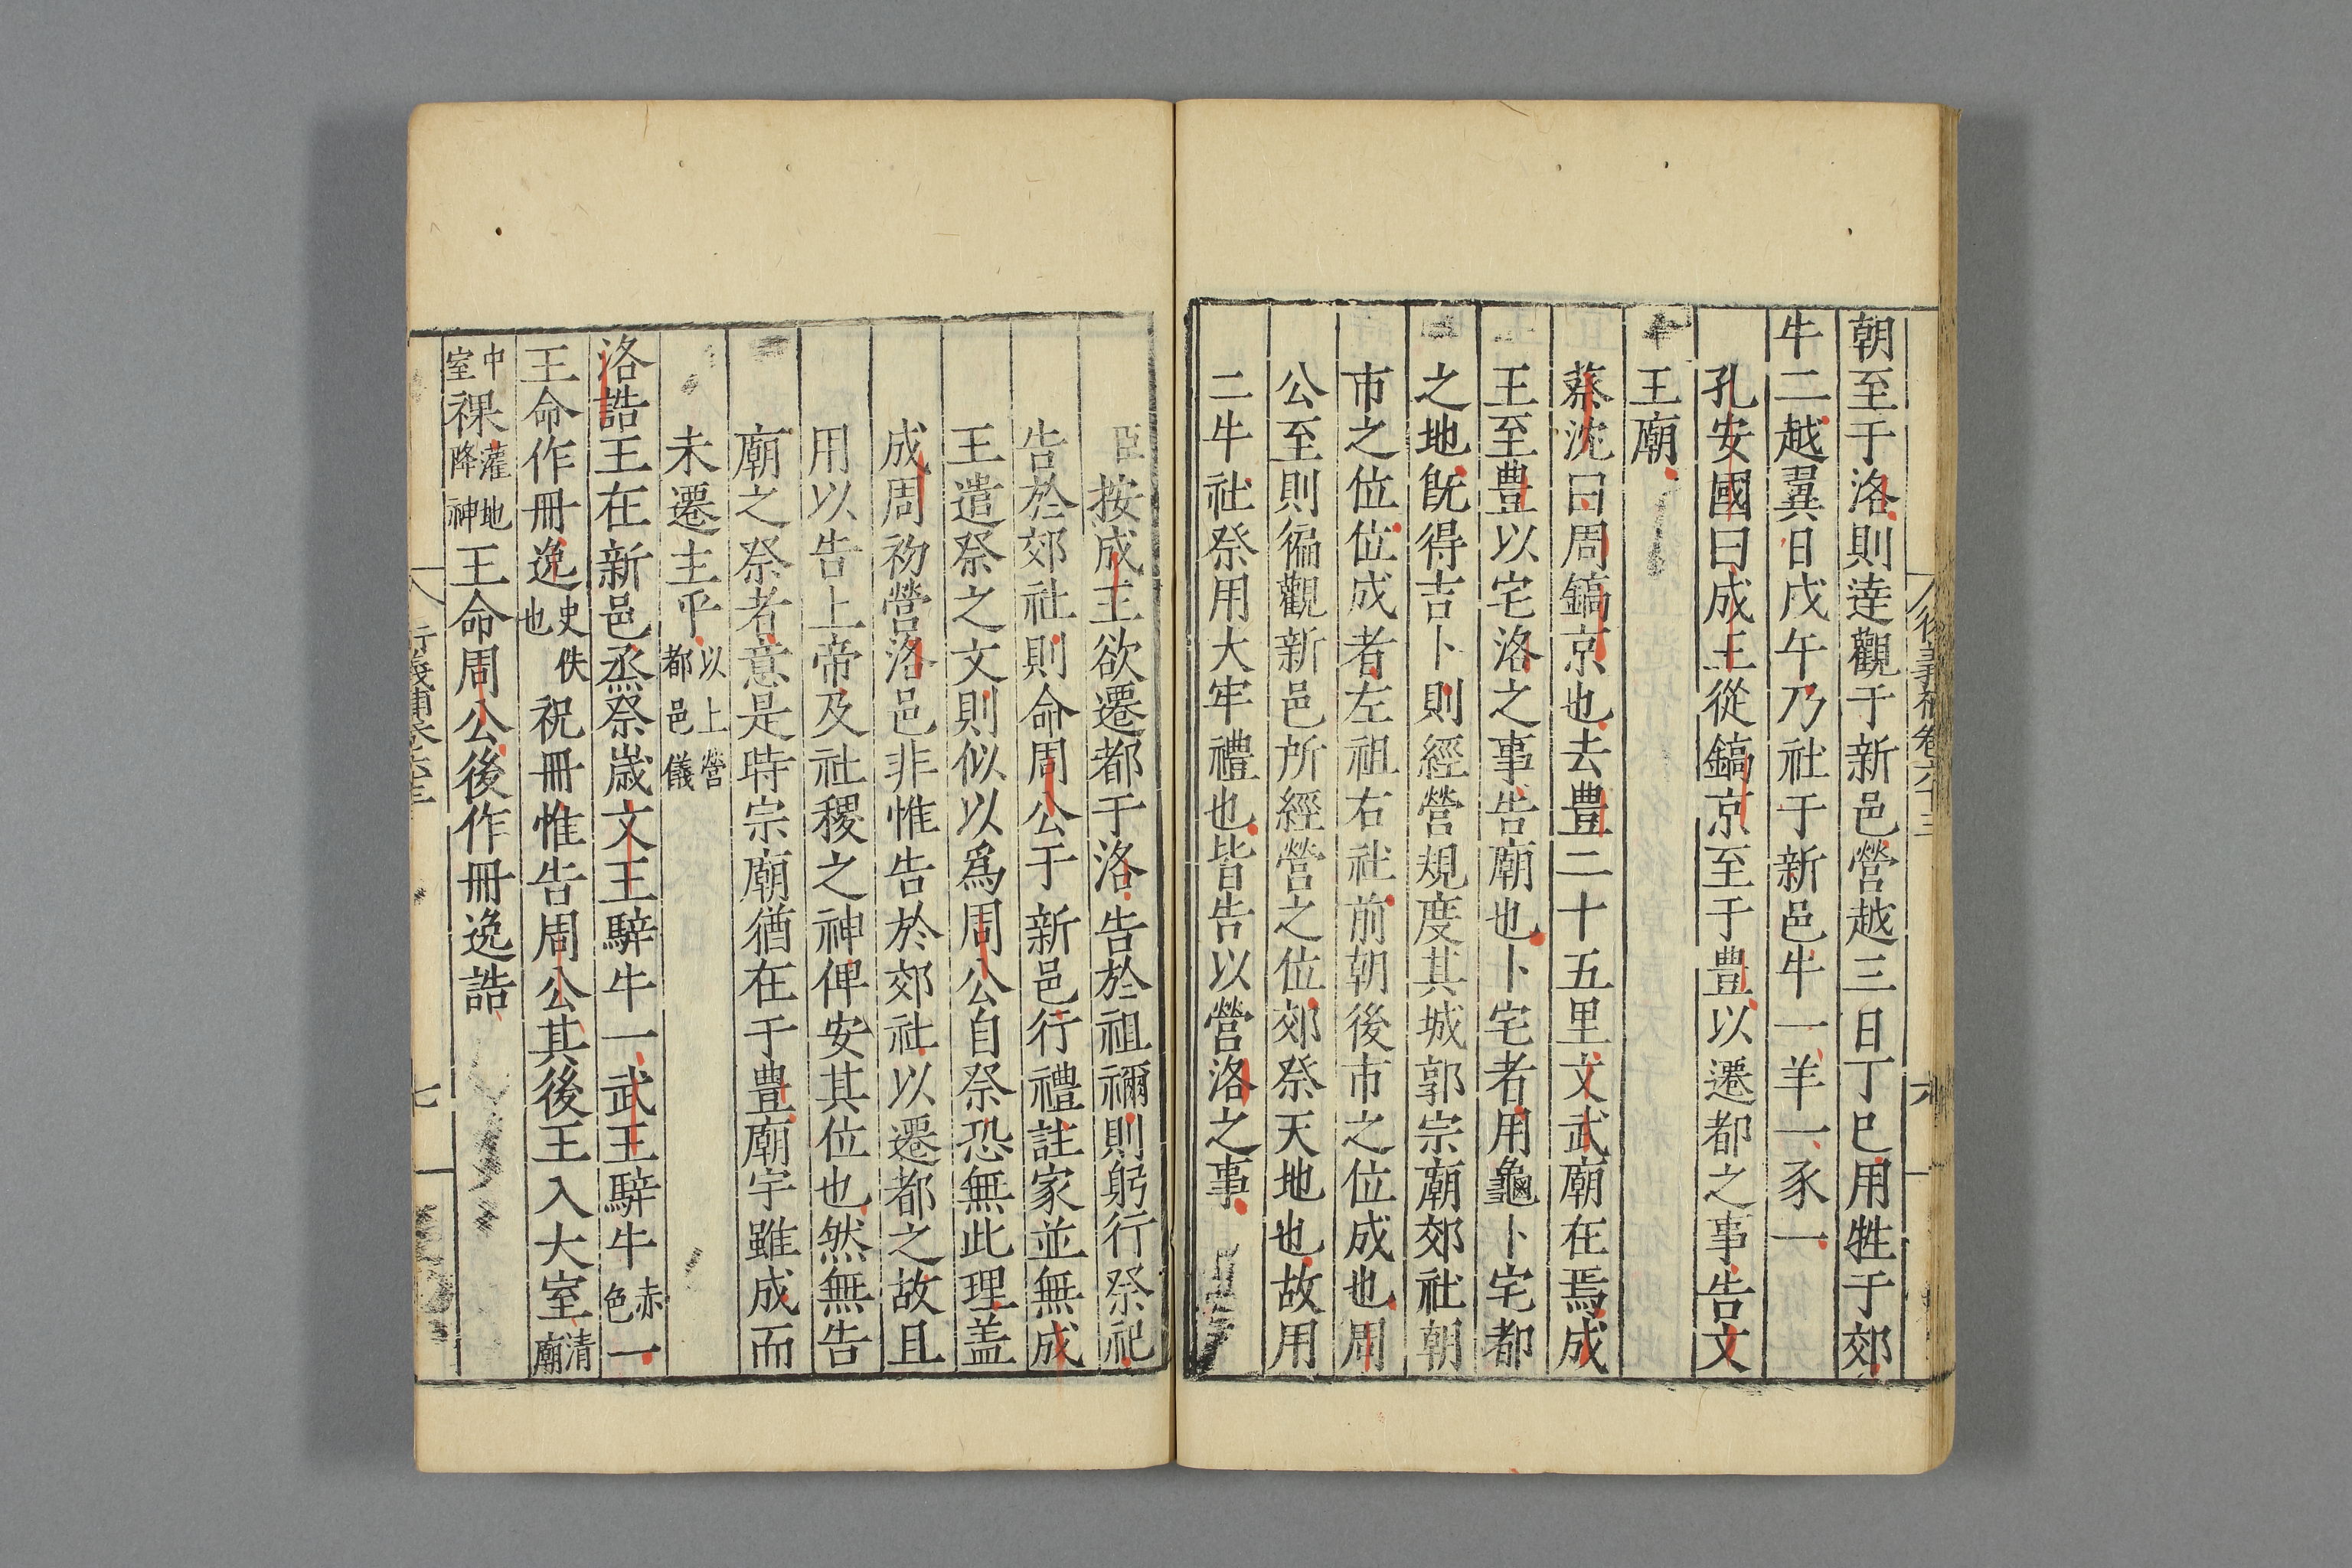 朝至于洛則逹觀于新邑營越三日丁巳用牲于郊
牛二越翼日戊午乃社于新邑牛一羊一豕一
孔安國曰成王從鎬京至于豊以遷都之事告文
王廟
蔡沈曰周鎬京也去豊二十五里文武廟在焉成
王至豊以宅洛之事告廟也卜宅者用龜卜宅都
之地旣得吉卜則經營規度其城郭宗廟郊社朝
市之位位成者左祖右社前朝後市之位成也周
公至則徧觀新邑所經營之位郊祭天地也故用
二牛社祭用大牢禮也皆告以營洛之事
臣按成王欲遷都于洛告於祖禰則躬行祭祀
告於郊社則命周公于新邑行禮註家並無成
王遣祭之文則似以爲周公自祭恐無此理盖
成周初營洛邑非惟告於郊社以遷都之故且
用以告上帝及社稷之神俾安其位也然無告
廟之祭者意是時宗廟猶在于豊廟宇雖成而
未遷主乎以上營都邑儀
洛誥王在新邑烝祭歲文王騂牛一武王騂牛赤色一
王命作冊逸史佚也祝冊惟告周公其後王入大室清廟
中室祼灌地降神王命周公後作冊逸誥
七